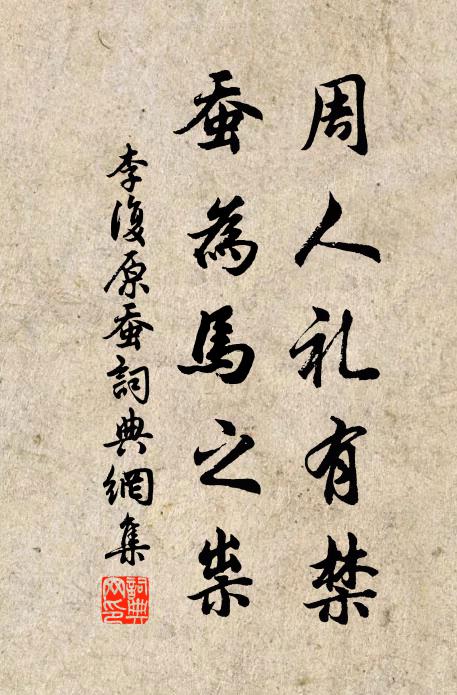 周人礼有禁
蚕為馬之祟
李復原蚕詞典網集